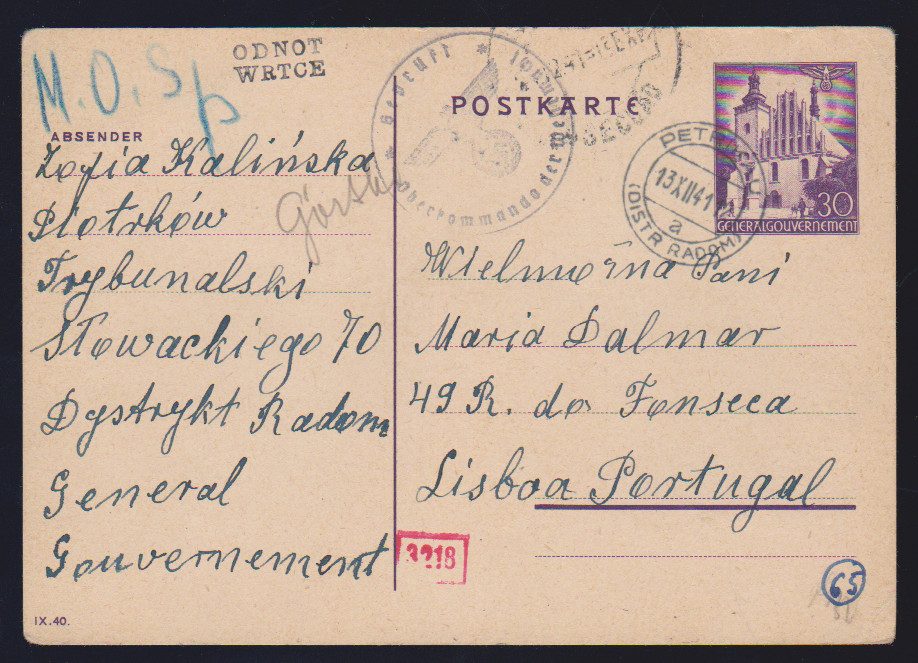 M.O.Sp
ODNOT
WRTCE
POSTKARTE
geprüft
Oberkommando der Wehrmacht
PET
13.XII.41
a
(DISTR RADOM)
30
GENERALGOUVERNEMENT
ABSENDER
Zofia Kalińska
Piotrków
Trybunalski
Słowackiego 70
Dystrykt Radom
General
Gouvernement
Wielmożna Pani
Maria Dalmar
49 R. do Fonseca
Lisboa Portugal
3218
65
IX.40.